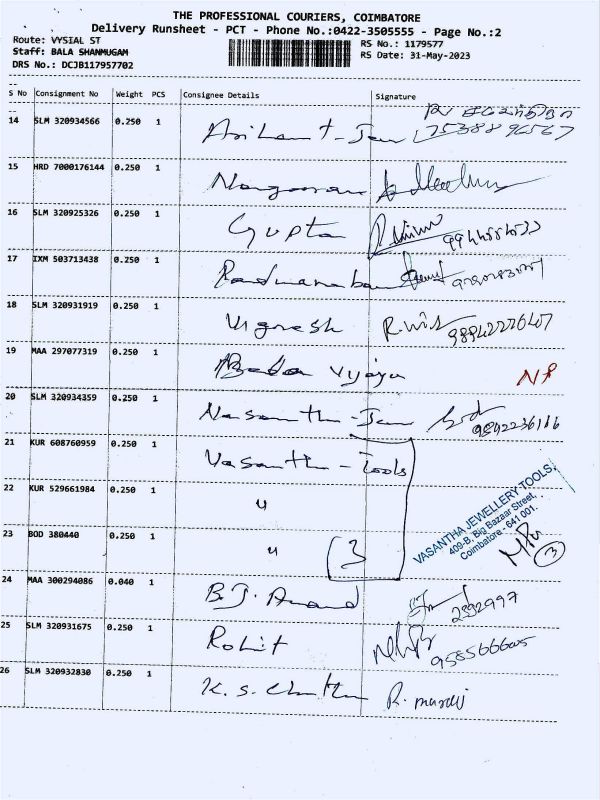 THE PROFESSIONAL COURIERS, COIMBATORE
Delivery Runsheet - PCT - Phone No.:0422-3505555 - Page No.:2
Route: VYSIAL ST
RS No.: 1179577
Staff: BALA SHANMUGAM
RS Date: 31-May-2023
DRS No.: DCJB117957702
S No Consignment No Weight PCS Consignee Details Signature
14 SLM 320934566 0.250 1
15 HRD 7000176144 0.250 1
16 SLM 320925326 0.250 1 Gupta
17 IXM 503713438 0.250 1
18 SLM 320931919 0.250 1 Vignesh
19 MAA 297077319 0.250 1 Vijaya
20 SLM 320934359 0.250 1 9842236116
21 KUR 608760959 0.250 1 Vasanth - Tools
22 KUR 529661984 0.250 1 "
23 BOD 380440 0.250 1 " 3
VASANTHA JEWELLERY TOOLS,
409-B, Big Bazaar Street,
Coimbatore - 641 001.
3
24 MAA 300294086 0.040 1 B.J. Anand 2392997
25 SLM 320931675 0.250 1 Rohit 9585566605
26 SLM 320932830 0.250 1 K. S.